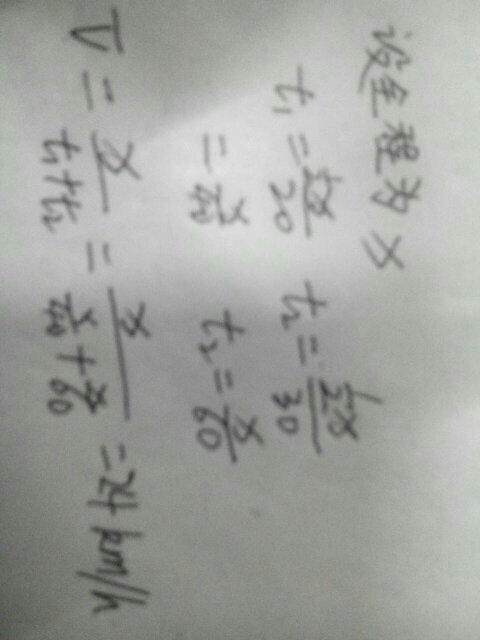 设全程为x
t₁ = ½x/20 t₂ = ½x/30
= x/40 t₂ = x/60
V̄ = x/(t₁+t₂) = x/(x/40 + x/60) = 24 km/h